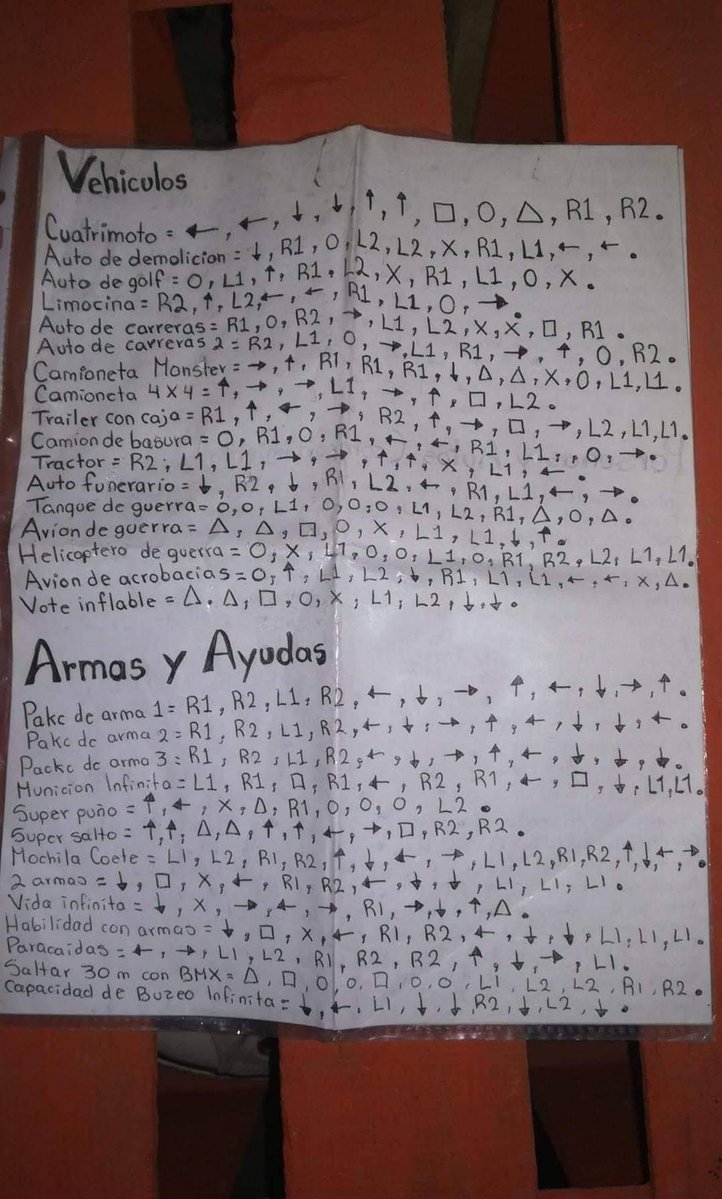 Vehiculos
Cuatrimoto = ←, ←, ↓, ↓, ↑, ↑, □, O, △, R1, R2.
Auto de demolicion = ↓, R1, O, L2, L2, X, R1, L1, ←, ←.
Auto de golf = O, L1, ↑, R1, L2, X, R1, L1, O, X.
Limocina = R2, ↑, L2, ←, ←, R1, L1, O, →.
Auto de carreras = R1, O, R2, →, L1, L2, X, X, □, R1.
Auto de carreras 2 = R2, L1, O, →, L1, R1, →, ↑, O, R2.
Camioneta Monster = →, ↑, R1, R1, R1, ↓, △, △, X, O, L1, L1.
Camioneta 4X4 = ↑, →, →, L1, →, ↑, □, L2.
Trailer con caja = R1, ↑, ←, →, R2, ↑, →, □, →, L2, L1, L1.
Camion de basura = O, R1, O, R1, ←, ←, R1, L1, O, →.
Tractor = R2, L1, L1, →, →, ↑, ↑, X, L1, ←.
Auto funerario = ↓, R2, ↓, R1, L2, ←, R1, L1, ←, →.
Tanque de guerra = O, O, L1, O, O, O, L1, L2, R1, △, O, △.
Avion de guerra = △, △, □, O, X, L1, L1, ↓, ↑.
Helicoptero de guerra = O, X, L1, O, O, L1, O, R1, R2, L2, L1, L1.
Avion de acrobacias = O, ↑, L1, L2, ↓, R1, L1, L1, ←, ←, X, △.
Vote inflable = △, △, □, O, X, L1, L2, ↓, ↓.
Armas y Ayudas
Pakc de arma 1 = R1, R2, L1, R2, ←, ↓, →, ↑, ←, ↓, →, ↑.
Pakc de arma 2 = R1, R2, L1, R2, ←, ↓, →, ↑, ←, ↓, ↓, ←.
Packc de arma 3 = R1, R2, L1, R2, ←, ↓, →, ↑, ←, ↓, ↓, ↓.
Municion Infinita = L1, R1, □, R1, ←, R2, R1, ←, □, ↓, L1, L1.
Super puño = ↑, ←, X, △, R1, O, O, O, L2.
Super salto = ↑, ↑, △, △, ↑, ↑, ←, →, □, R2, R2.
Mochila Coete = L1, L2, R1, R2, ↑, ↓, ←, →, L1, L2, R1, R2, ↑, ↓, ←, →.
2 armas = ↓, □, X, ←, R1, R2, ←, ↓, ↓, L1, L1, L1.
Vida infinita = ↓, X, →, ←, →, R1, →, ↓, ↑, △.
Habilidad con armas = ↓, □, X, ←, R1, R2, ←, ↓, ↓, L1, L1, L1.
Paracaidas = ←, →, L1, L2, R1, R2, R2, ↑, ↓, →, L1.
Saltar 30 m con BMX = △, □, O, O, □, O, O, L1, L2, L2, R1, R2.
Capacidad de Buzeo Infinita = ↓, ←, L1, ↓, ↓, R2, ↓, L2, ↓.